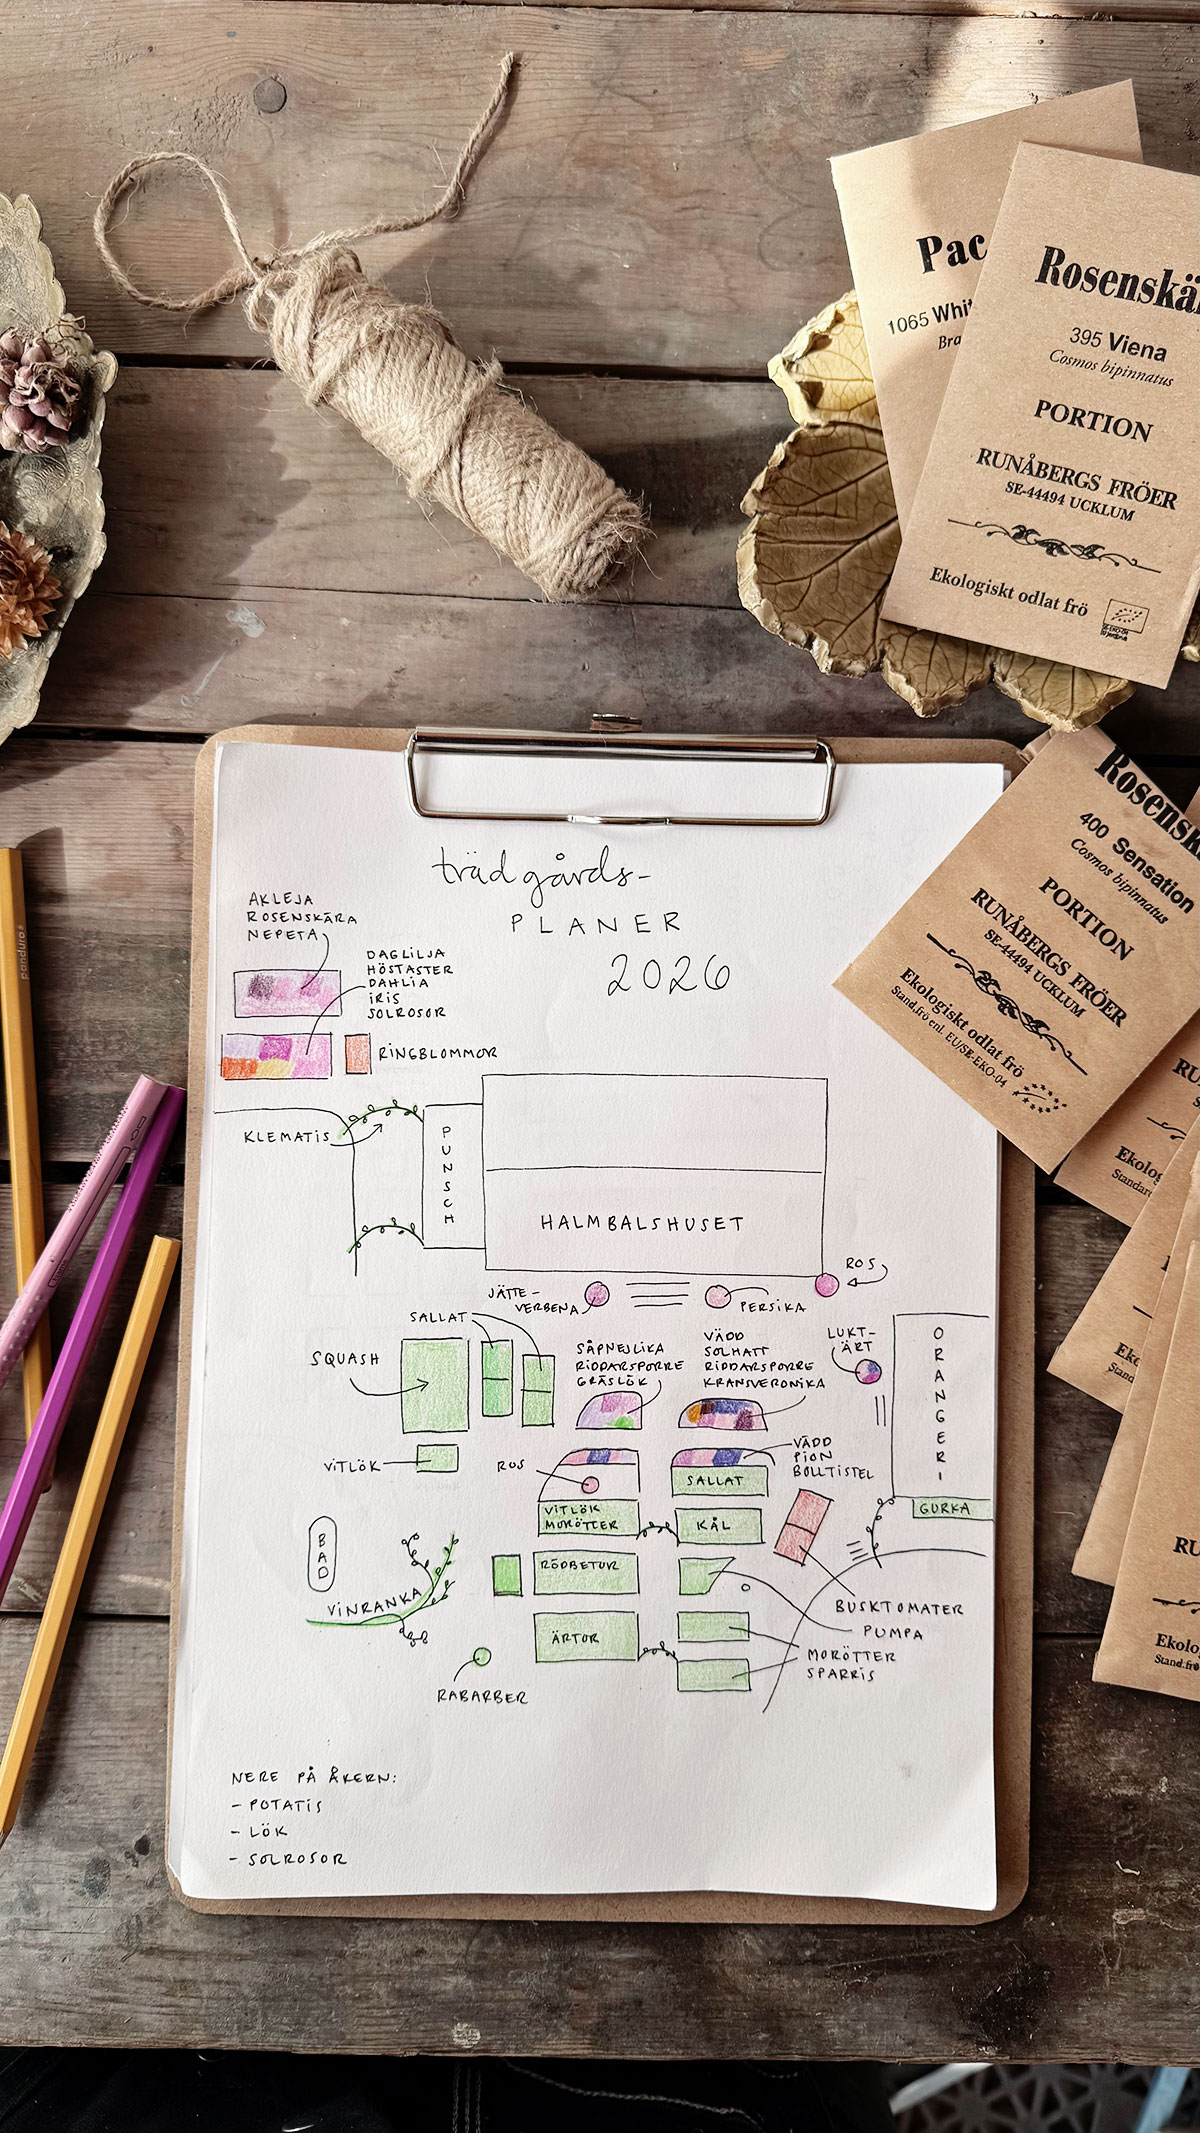 Pac
1065 Whit
Bra
Rosenskä
395 Viena
Cosmos bipinnatus
PORTION
RUNÅBERGS FRÖER
SE-44494 UCKLUM
Ekologiskt odlat frö
Rosensk
400 Sensation
Cosmos bipinnatus
PORTION
RUNÅBERGS FRÖER
SE-44494 UCKLUM
Ekologiskt odlat frö
Stand.frö enl. EU/SE-EKO-04
panduro
trädgårds-
PLANER
2026
AKLEJA
ROSENSKÄRA
NEPETA
DAGLILJA
HÖSTASTER
DAHLIA
IRIS
SOLROSOR
RINGBLOMMOR
KLEMATIS
PUNSCH
HALMBALSHUSET
ROS
JÄTTE-
VERBENA
PERSIKA
SALLAT
SQUASH
SÅPNEJLIKA
RIDDARSPORRE
GRÄSLÖK
VÄDD
SOLHATT
RIDDARSPORRE
KRANSVERONIKA
LUKT-
ÄRT
ORANGERI
VITLÖK
ROS
VÄDD
PION
BOLLTISTEL
SALLAT
VITLÖK
MORÖTTER
KÅL
GURKA
BAD
RÖDBETOR
VINRANKA
BUSKTOMATER
PUMPA
ÄRTOR
MORÖTTER
SPARRIS
RABARBER
NERE PÅ ÅKERN:
- POTATIS
- LÖK
- SOLROSOR
RU
Ekolog
Standar
Eko
Stand
RU
Ekolo
Stand.frö